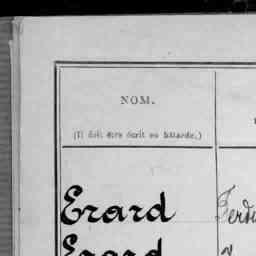 NOM.
(Il doit être écrit en bâtarde.)
Erard Ferdi
Erard